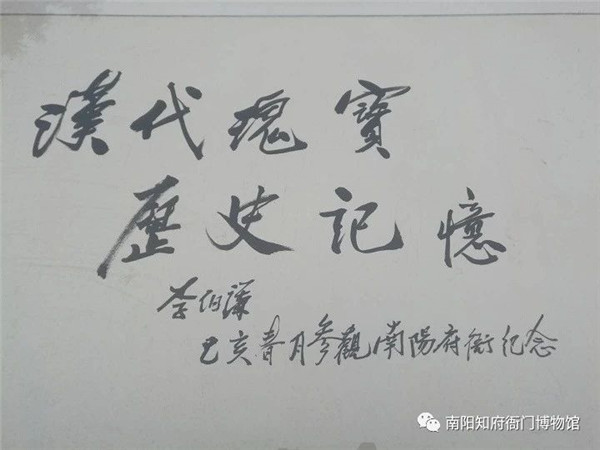 漢代瑰寶
歷史記憶
李伯謙
己亥春月參觀南陽府衙紀念
南阳知府衙门博物馆